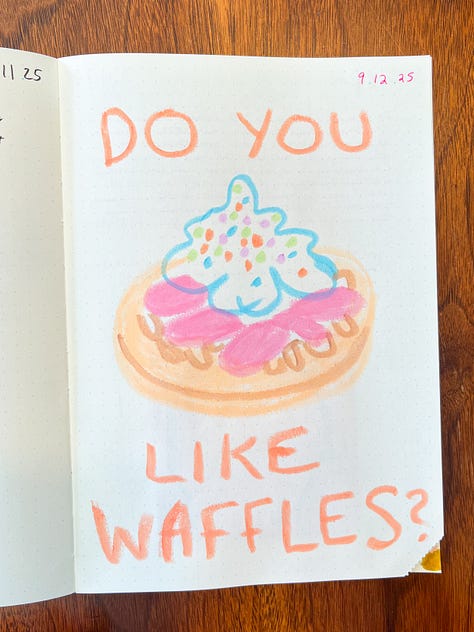 11 25
9.12.25
DO YOU
LIKE
WAFFLES?